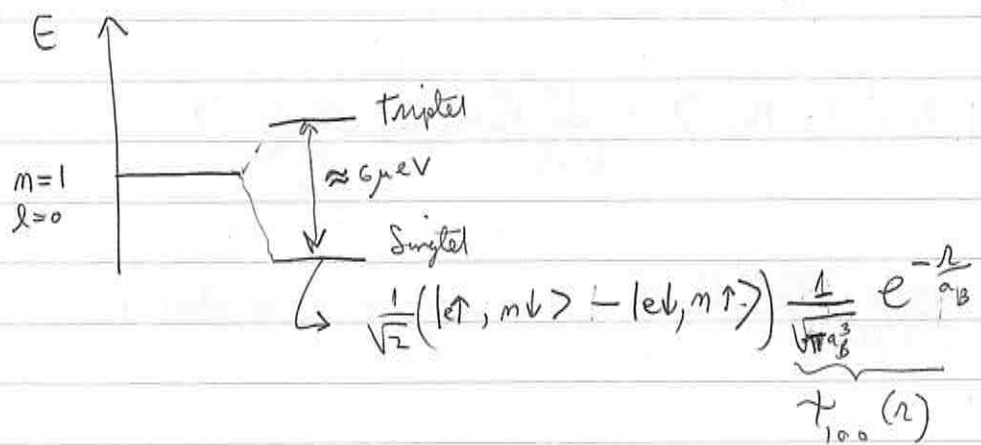 E
Triplet
≈ 6 μeV
n=1
l=0
Singlet
1/√2 (|e↑, n↓> - |e↓, n↑>) 1/√(πa_B^3) e^(-r/a_B)
ψ_100 (r)